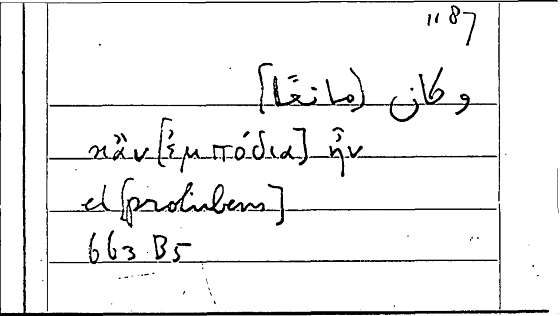 1187
وكان (مانعًا]
κἂν [ἐμπόδια] ἦν
et [prohibens]
663 B5